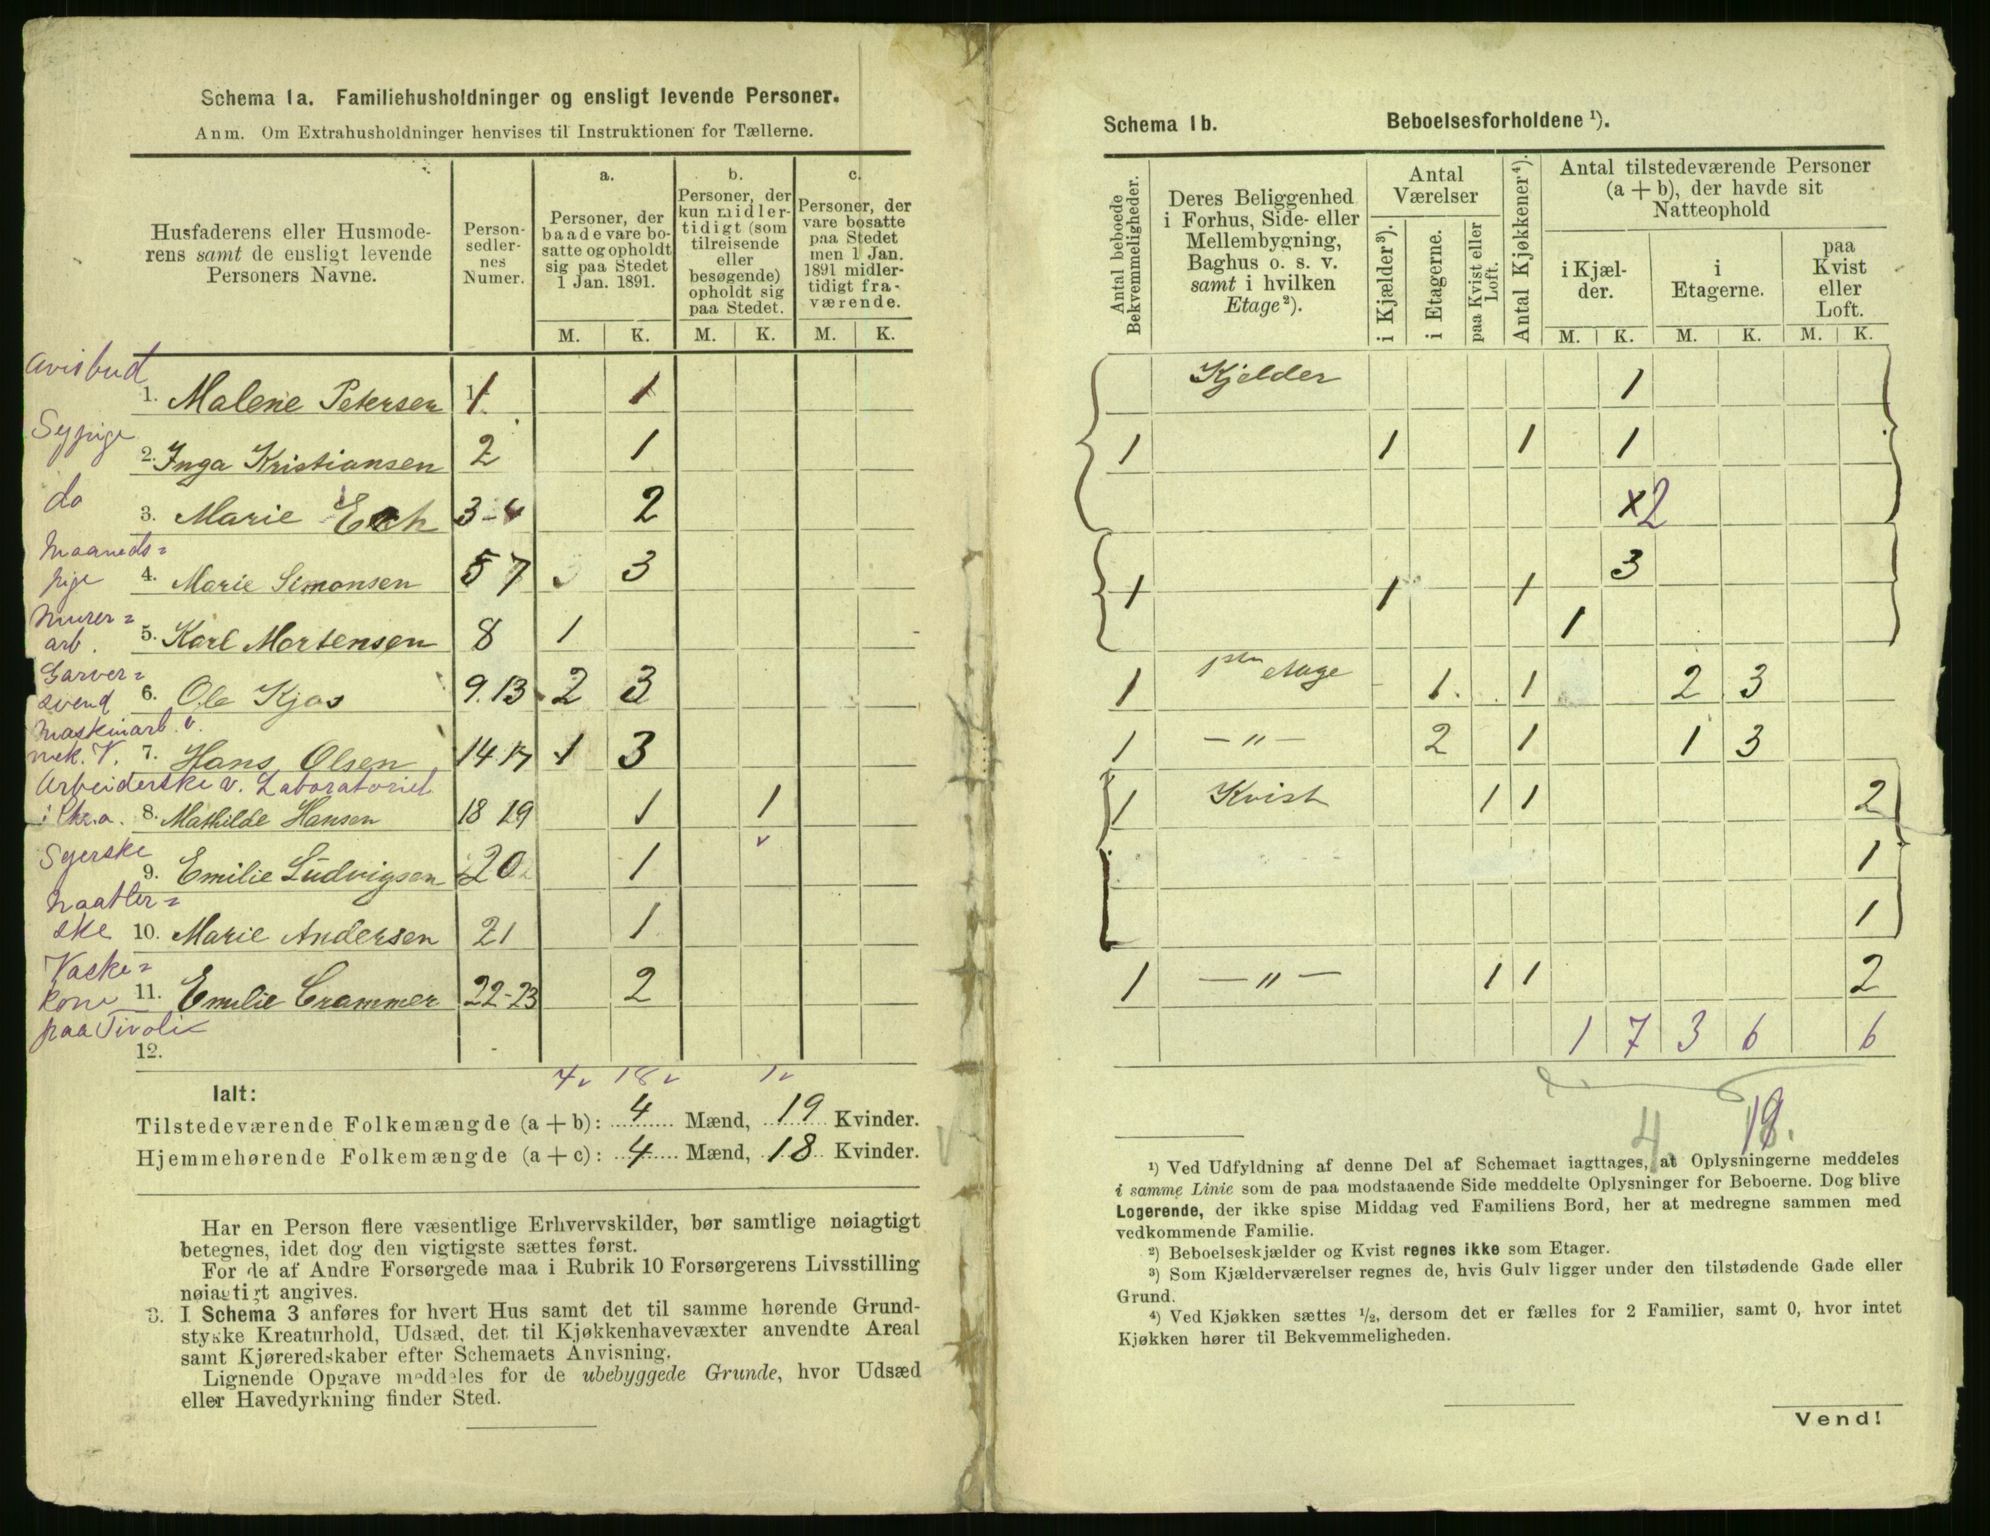 Schema 1a. Familiehusholdninger og ensligt levende Personer.
Anm. Om Extrahusholdninger henvises til Instruktionen for Tællerne.
Husfaderens eller Husmode-
rens samt de ensligt levende
Personers Navne.
Person-
sedler-
nes
Numer.
a.
Personer, der
baade vare bo-
satte og opholdt
sig paa Stedet
1 Jan. 1891.
b.
Personer, der
kun midler-
tidigt (som
tilreisende
eller
besøgende)
opholdt sig
paa Stedet.
c.
Personer, der
vare bosatte
paa Stedet
men 1 Jan.
1891 midler-
tidigt fra-
værende.
M. K. M. K. M. K.
Avisbud
1. Malene Petersen 1 1
Sypige
2. Inga Kristiansen 2 1
do
3. Marie 3-4 2
Maaneds=
pige 4. Marie Simonsen 5 7 3
Murer=
arb. 5. Karl Mortensen 8 1
Garver=
svend 6. Ole Kjos 9.13 2 3
Maskinarb. v.
mek. V. 7. Hans Olsen 14 17 1 3
Arbeiderske v. Laboratoriet
i Chr.a. 8. Mathilde Hansen 18 19 1 1
Syerske
9. Emilie Ludvigsen 20 1
Naatler=
ske 10. Marie Andersen 21 1
Vaske=
kone 11. Emilie Crammer 22-23 2
paa Tivoli
12.
4 18 1
Ialt:
Tilstedeværende Folkemængde (a + b): 4 Mænd, 19 Kvinder.
Hjemmehørende Folkemængde (a + c): 4 Mænd, 18 Kvinder.
Har en Person flere væsentlige Erhvervskilder, bør samtlige nøiagtigt
betegnes, idet dog den vigtigste sættes først.
For de af Andre Forsørgede maa i Rubrik 10 Forsørgerens Livsstilling
nøiagtigt angives.
3. I Schema 3 anføres for hvert Hus samt det til samme hørende Grund-
stykke Kreaturhold, Udsæd, det til Kjøkkenhavevæxter anvendte Areal
samt Kjøreredskaber efter Schemaets Anvisning.
Lignende Opgave meddeles for de ubebyggede Grunde, hvor Udsæd
eller Havedyrkning finder Sted.
Schema 1b. Beboelsesforholdene ¹).
Antal beboede
Bekvemmeligheder.
Deres Beliggenhed
i Forhus, Side- eller
Mellembygning,
Baghus o. s. v.
samt i hvilken
Etage²).
Antal
Værelser
i Kjælder³).
i Etagerne.
paa Kvist eller
Loft.
Antal Kjøkkener⁴).
Antal tilstedeværende Personer
(a + b), der havde sit
Natteophold
i Kjæl-
der.
i
Etagerne.
paa
Kvist
eller
Loft.
M. K. M. K. M. K.
Kjelder 1
1 1 1 1
x2
3
1 1 1
1
1 1ste etage 1 1 2 3
1 —"— 2 1 1 3
1 Kvist 1 1 2
1
1
1 —"— 1 1 2
1 7 3 6 6
4 19.
¹) Ved Udfyldning af denne Del af Schemaet iagttages, at Oplysningerne meddeles
i samme Linie som de paa modstaaende Side meddelte Oplysninger for Beboerne. Dog blive
Logerende, der ikke spise Middag ved Familiens Bord, her at medregne sammen med
vedkommende Familie.
²) Beboelseskjælder og Kvist regnes ikke som Etager.
³) Som Kjælderværelser regnes de, hvis Gulv ligger under den tilstødende Gade eller
Grund.
⁴) Ved Kjøkken sættes ½, dersom det er fælles for 2 Familier, samt 0, hvor intet
Kjøkken hører til Bekvemmeligheden.
Vend!